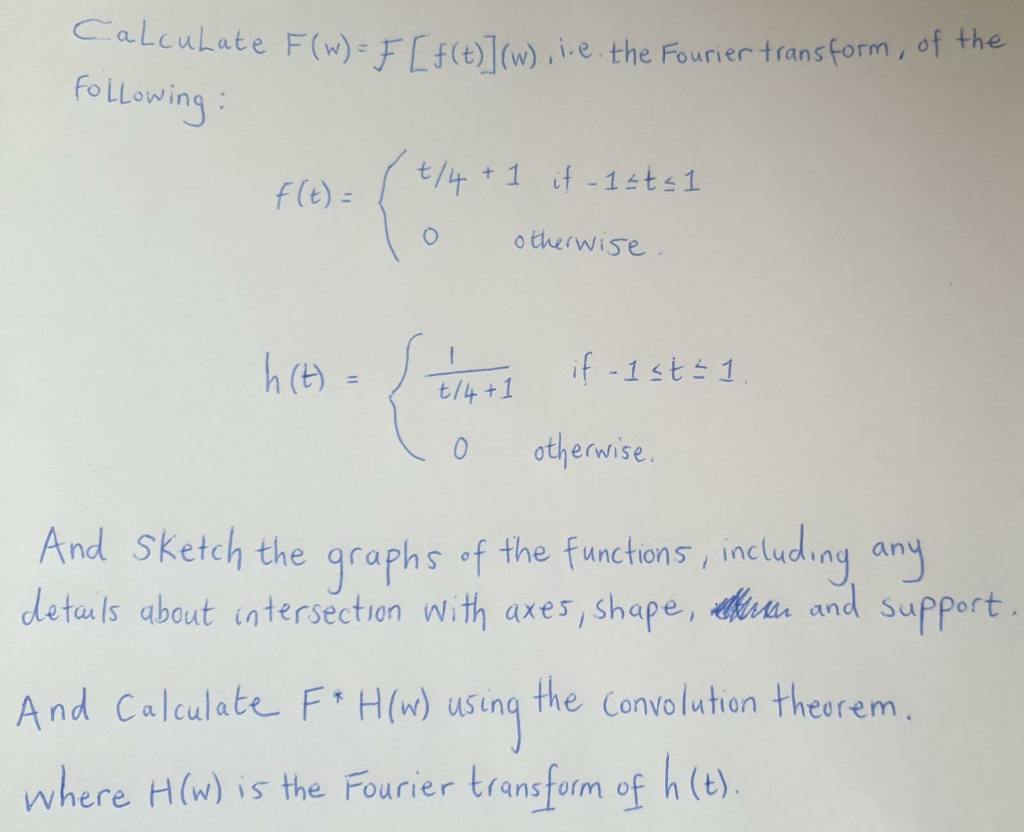 Calculate F(w) = F[f(t)](w), i.e. the Fourier transform, of the
following:
f(t) = { t/4 + 1 if -1≤t≤1
0 otherwise.
h(t) = { 1/(t/4+1) if -1≤t≤1.
0 otherwise.
And sketch the graphs of the functions, including any
details about intersection with axes, shape, and support.
And Calculate F * H(w) using the convolution theorem.
where H(w) is the Fourier transform of h(t).